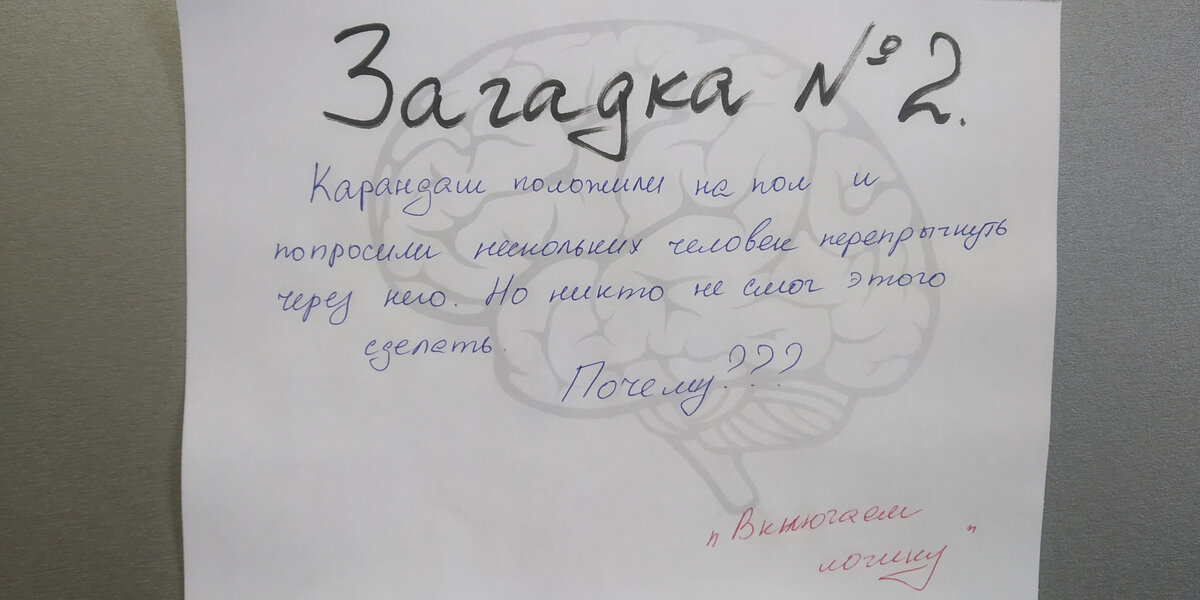 Загадка № 2.
Карандаш положили на пол и
попросили нескольких человек перепрыгнуть
через него. Но никто не смог этого
сделать.
Почему???
"Включаем
логику"